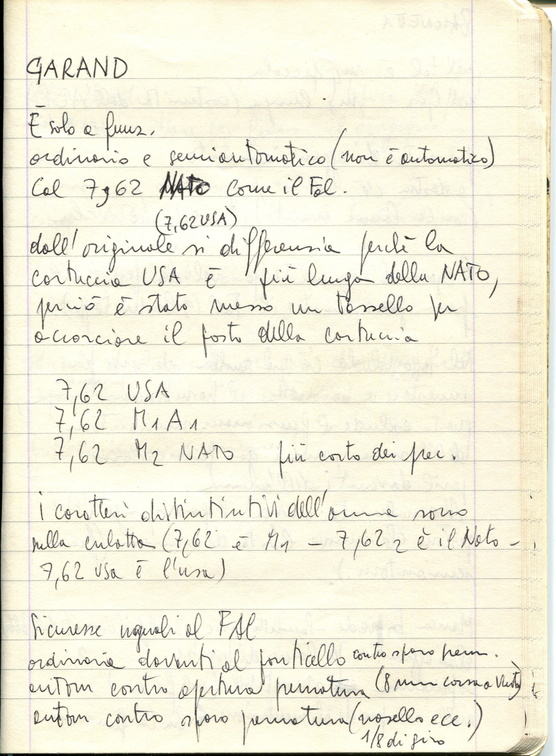 GARAND
È solo a funz.
ordinario e semiautomatico (non è automatico)
Cal 7,62 NATO come il Fal.
(7,62 USA)
dall'originale si differenzia perché la
cartuccia USA è più lunga della NATO,
perciò è stato messo un tassello per
accorciare il posto della cartuccia
7,62 USA
7,62 M1A1
7,62 M2 NATO più corto dei prec.
i caratteri distintintivi dell'arma sono
sulla culatta (7,62 è M1 - 7,62 2 è il Nato -
7,62 usa è l'usa)
Sicuresse uguali al FAL
ordinaria davanti al ponticello contro sparo prem.
autom contro apertura prematura (8 mm corsa a vuoto)
autom contro sparo prematura (nasello ecc.)
1/8 di giro